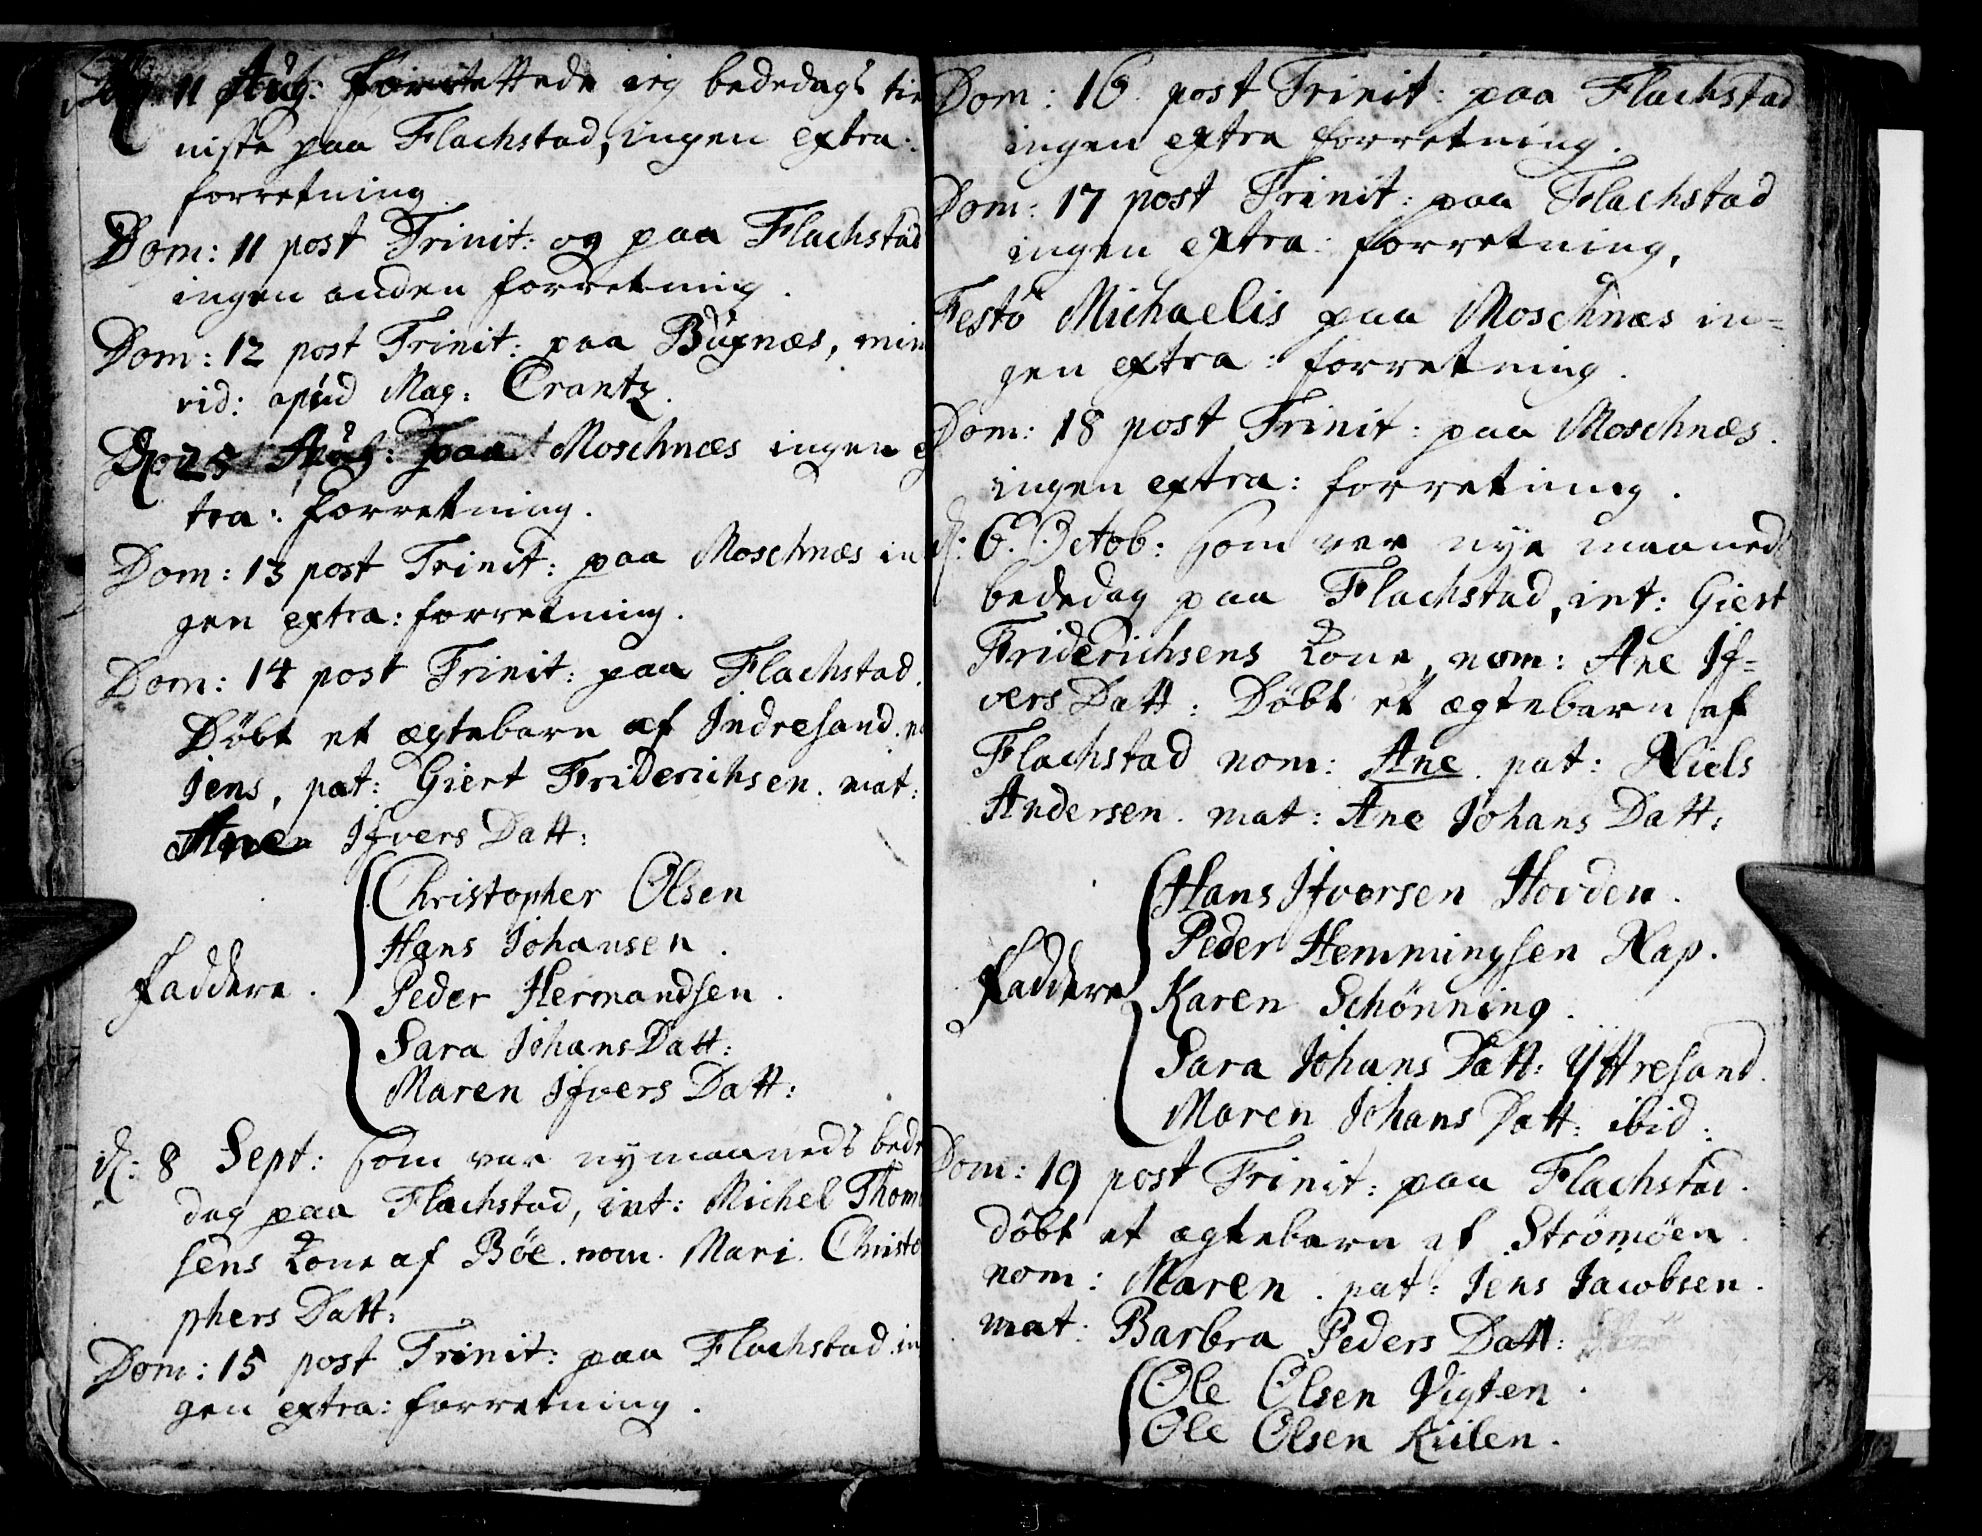 11 Aug: forrettede ieg bededags tie
niste paa Flachstad, ingen extra:
forretning.
Dom: 11 post Trinit: og paa Flachstad
ingen anden forretning.
Dom: 12 post Trinit: paa Bugnæs, min
vid: apud Mag: Crantz.
25 Aug: paa Moschnæs ingen ex
tra: forretning.
Dom: 13 post Trinit: paa Moschnæs in
gen extra: forretning.
Dom: 14 post Trinit: paa Flachstad.
Døbt et ægtebarn af Indresand.
Jens, pat: Giert Friderichsen. mat:
Ane Ifvers Datt:
Christopher Olsen
Hans Johansen.
Faddere. Peder Hermandsen.
Sara Johans Datt:
Maren Ifvers Datt:
d: 8 Sept: som var nymaaneds bede
dag paa Flachstad, int: Michel Thom
sens Kone af Böe. nom. Mari Christo
phers Datt:
Dom: 15 post Trinit: paa Flachstad in
gen extra: forretning.
Dom: 16 post Trinit: paa Flachstad
ingen extra forretning.
Dom: 17 post Trinit: paa Flachstad
ingen extra: forretning,
Festo Michaelis paa Moschnæs in=
gen extra: forretning.
Dom: 18 post Trinit: paa Moschnæs.
ingen extra: forretning.
d: 6. Octob: som var nye maaneds
bededag paa Flachstad, int: Giert
Friderichsens Kone, nom: Ane If=
vers Datt: Døbt et ægtebarn af
Flachstad nom: Ane. pat: Niels
Andersen. mat: Ane Johans Datt:
Hans Ifversen Hovden.
Peder Hemmingsen Nap.
Faddere Karen Schönning.
Sara Johans Datt: Yttresand.
Maren Johans Datt: ibid:
Dom: 19 post Trinit: paa Flachstad.
døbt et ægtebarn af Strömöen.
nom: Maren. pat: Jens Jacobsen.
mat: Barbra Peders Datt:
Ole Olsen Vigten.
Ole Olsen Kiilen.